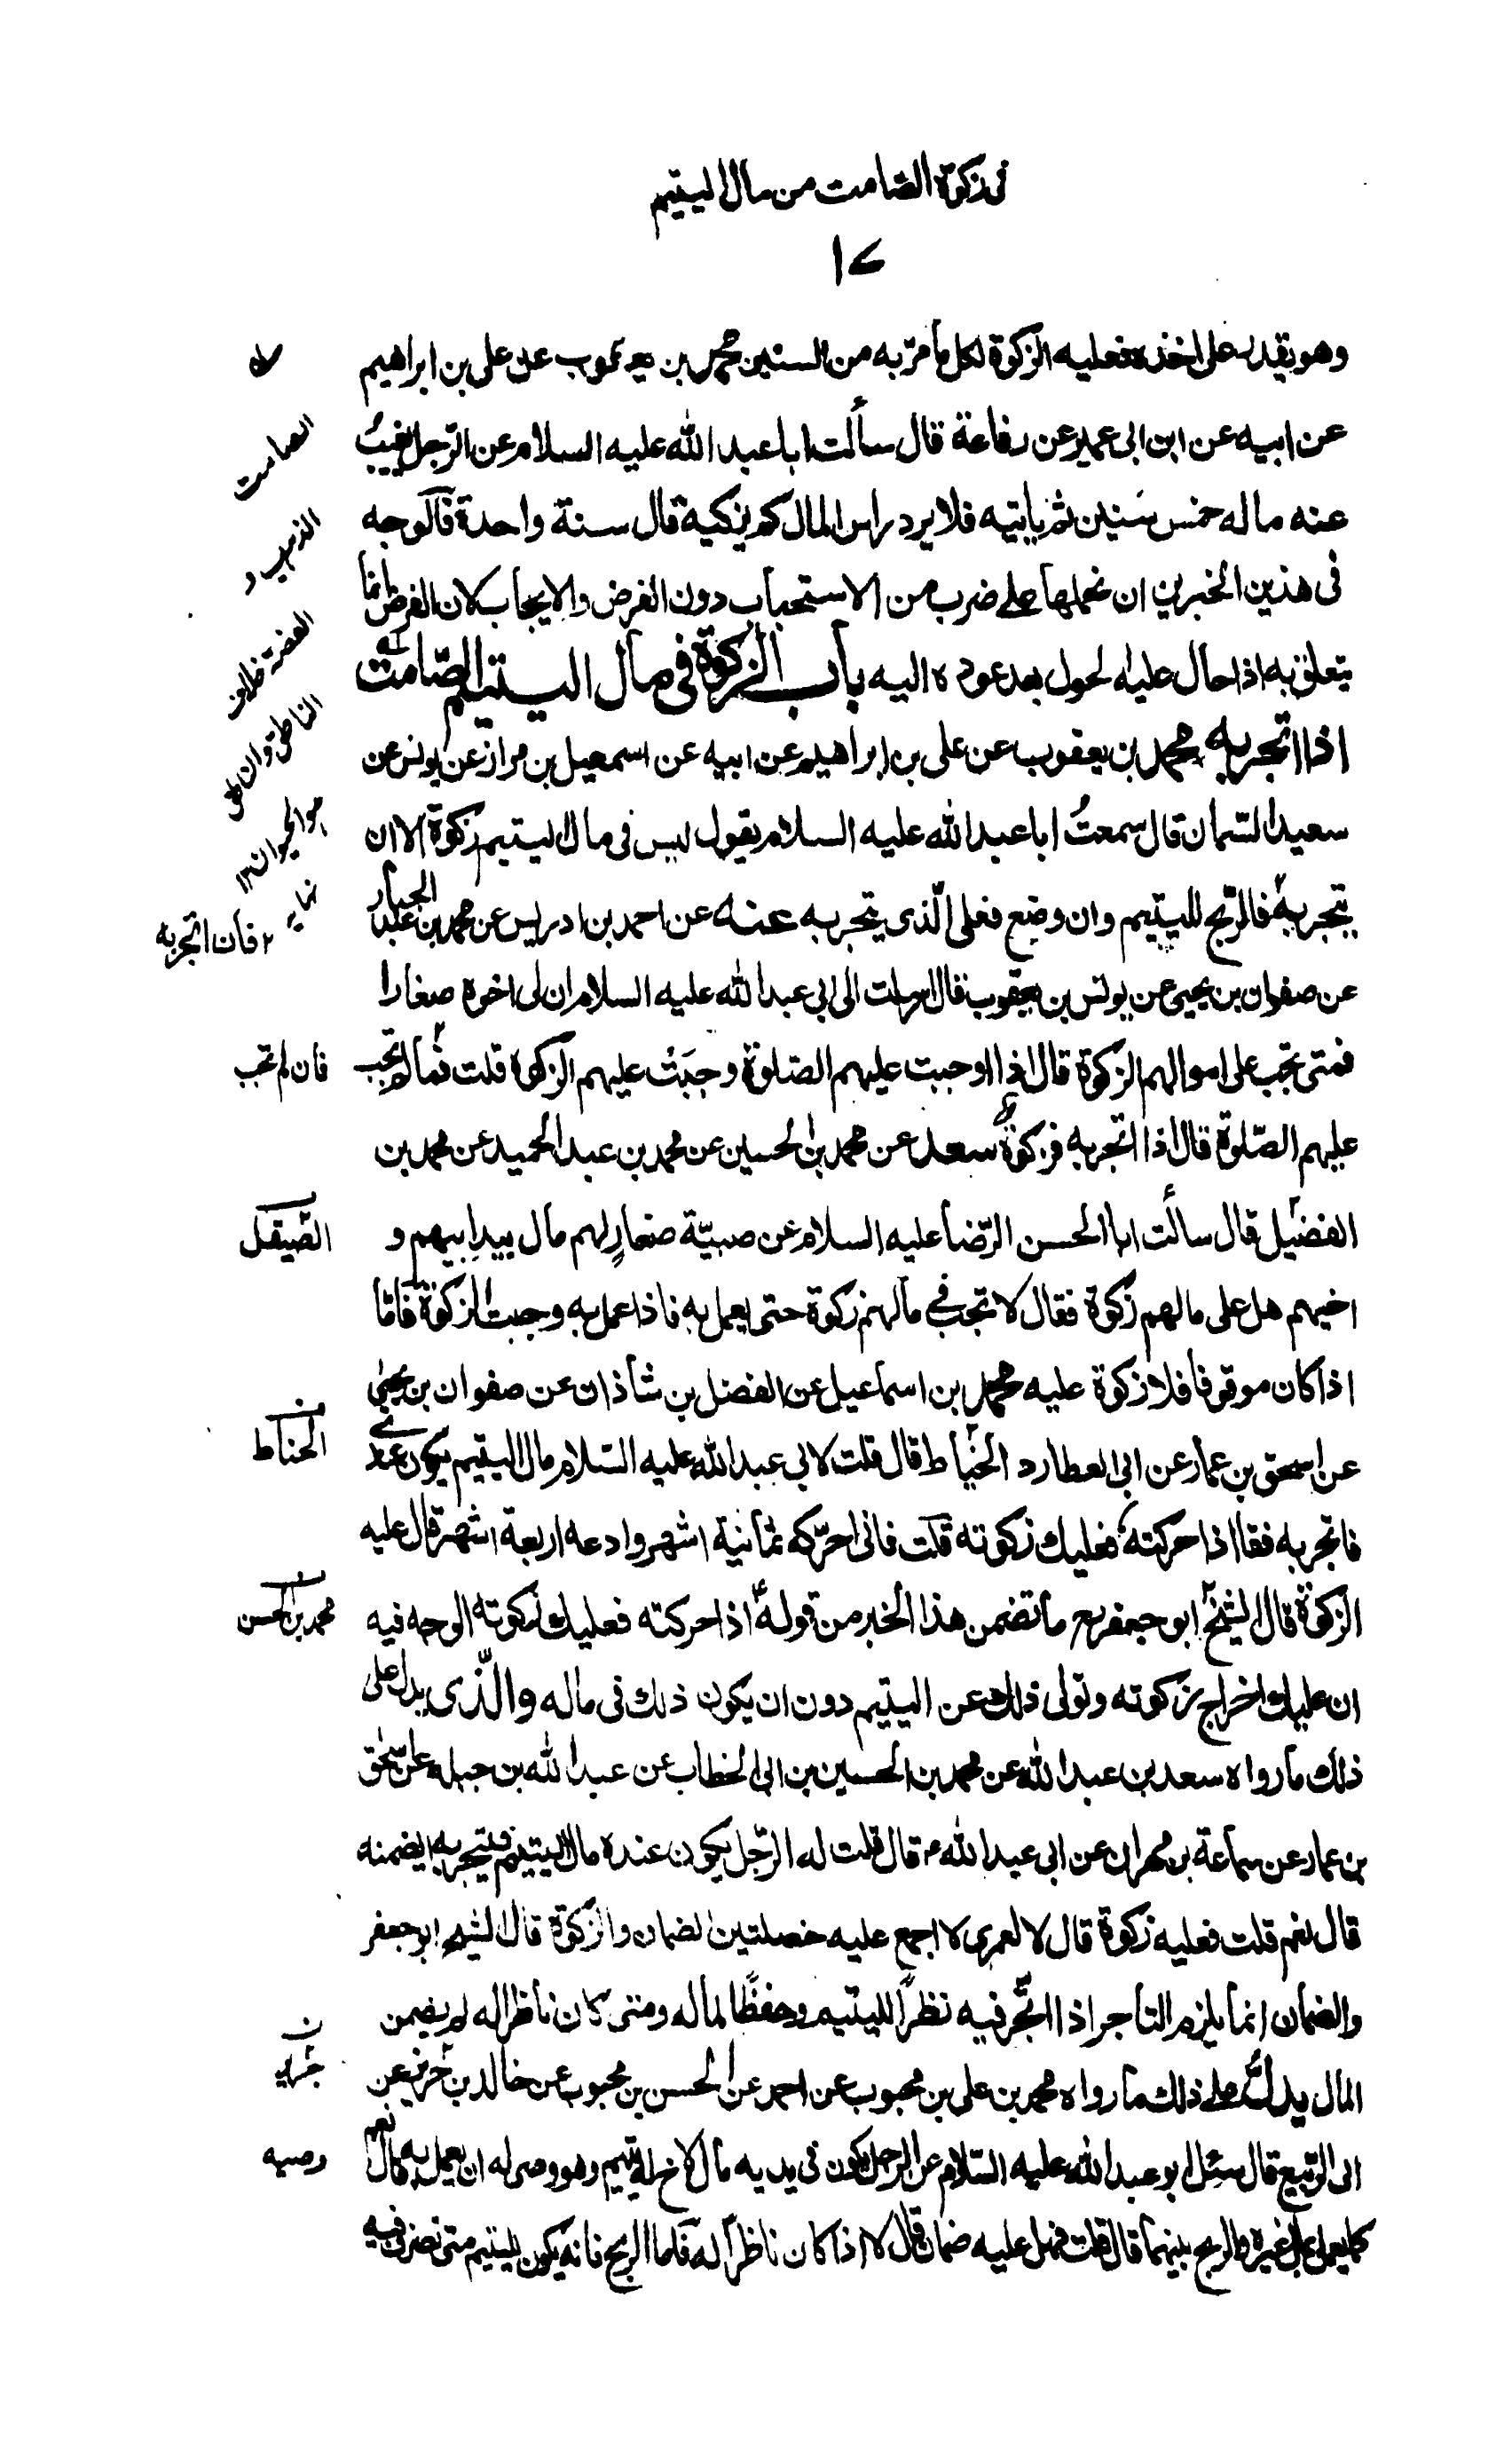 فى زكوة الصامت من مال اليتيم
١٧
وهو يقدر على اخذه فعليه الزكوة لكل ما مرّ به من السنين محمد بن يعقوب عن على بن ابراهيم
عن ابيه عن ابن ابى عمير عن رفاعة قال سألت ابا عبد الله عليه السلام عن الرّجل يغيبُ
عنه ماله خمس سَنين ثم ياتيه فلا يرد راس المال كم يزكيه قال سنة واحدة فالوجه
فى هذين الخبرين ان نحملها على ضرب من الاستحباب دون الفرض والايجاب لان الفرض انما
يتعلق به اذا حال عليه الحول بعد عوده اليه باب الزكوة فى مال اليتيم الصّامت
اذا اتجر به محمد بن يعقوب عن على بن ابراهيم عن ابيه عن اسمعيل بن مرار عن يونس عن
سعيد السّمان قال سمعتُ ابا عبد الله عليه السلام يقول ليس فى مال اليتيم زكوة الا ان
يتجر به فالرّبح لليتيم وان وضع فعلى الّذى يتجر به عنه عن احمد بن ادريس عن محمد بن عبد الجبار
عن صفوان بن يحيى عن يونس بن يعقوب قال ارسلت الى ابى عبد الله عليه السلام ان لى اخوة صغارا
فمتى تجب على اموالهم الزكوة قال اذا وجبت عليهم الصّلوة وجبَت عليهم الزكوة قلت فما لم تجب
عليهم الصّلوة قال اذا اتجر به فزكوة سعد عن محمد بن الحسين عن محمد بن عبد الحميد عن محمد بن
الفضيل قال سالت ابا الحسن الرّضا عليه السلام عن صبيّة صغارٍ لهم مال بيد ابيهم و
اخيهم هل على مالهم زكوة فقال لا تجب فى مالهم زكوة حتى يعمل به فاذا عمل به وجبت الزكوة فامّا
اذا كان موقوفا فلا زكوة عليه محمد بن اسماعيل عن الفضل بن شاذان عن صفوان بن يحيى
عن اسحق بن عمار عن ابى العطارد الخيّاط قال قلت لابى عبد الله عليه السّلام مال اليتيم يكون عندى
فاتجر به فقا اذا حركته فعليك زكوته قلت فانى احرّكه ثمانية اشهر وادعه اربعة اشهر قال عليه
الزكوة قال الشيخ ابو جعفر ره ما تضمن هذا الخبر من قوله ع اذا حركته فعليك زكوته الوجه فيه
ان عليك اخراج زكوته وتولى ذلك عن اليتيم دون ان يكون ذلك فى ماله والّذى يدل على
ذلك ما رواه سعد بن عبد الله عن محمد بن الحسين بن ابى الخطاب عن عبد الله بن جبلة عن اسحٰق
بن عمار عن سماعة بن مهران عن ابى عبد الله ع قال قلت له الرّجل يكون عنده مال اليتيم فيتجر به ايضمنه
قال نعم قلت فعليه زكوة قال لا لعمرى لا اجمع عليه خصلتين الضمان والزكوة قال الشيخ ابو جعفر
والضمان انما يلزم التاجر اذا اتّجر فيه نظراً لليتيم وحفظًا لماله ومتى كان ناظرا له لم يضمن
المال يدلّ على ذلك ما رواه محمد بن على بن محبوب عن احمد عن الحسن بن محبوب عن خالد بن جرير عن
ابى الرّبيع قال سئل ابو عبد الله عليه السّلام عن الرجل يكون فى يديه مال لاخ له يتيم وهو وصى له ان يعمل به قال نعم
كما يعمل بمال غيره والربح بينهما قال قلت فهل عليه ضمان قال لا اذا كان ناظراً له فاما الربح فانه يكون لليتيم متى تصرف فيه
الصامت
الذهب و
الفضة خلاف
الناطق وان طق
هو الحيوان ١٢
نهايه
٢ فان اتجر به
فان لم تجب
الصّيقل
الحناط
محمد بن الحسن
وصيه